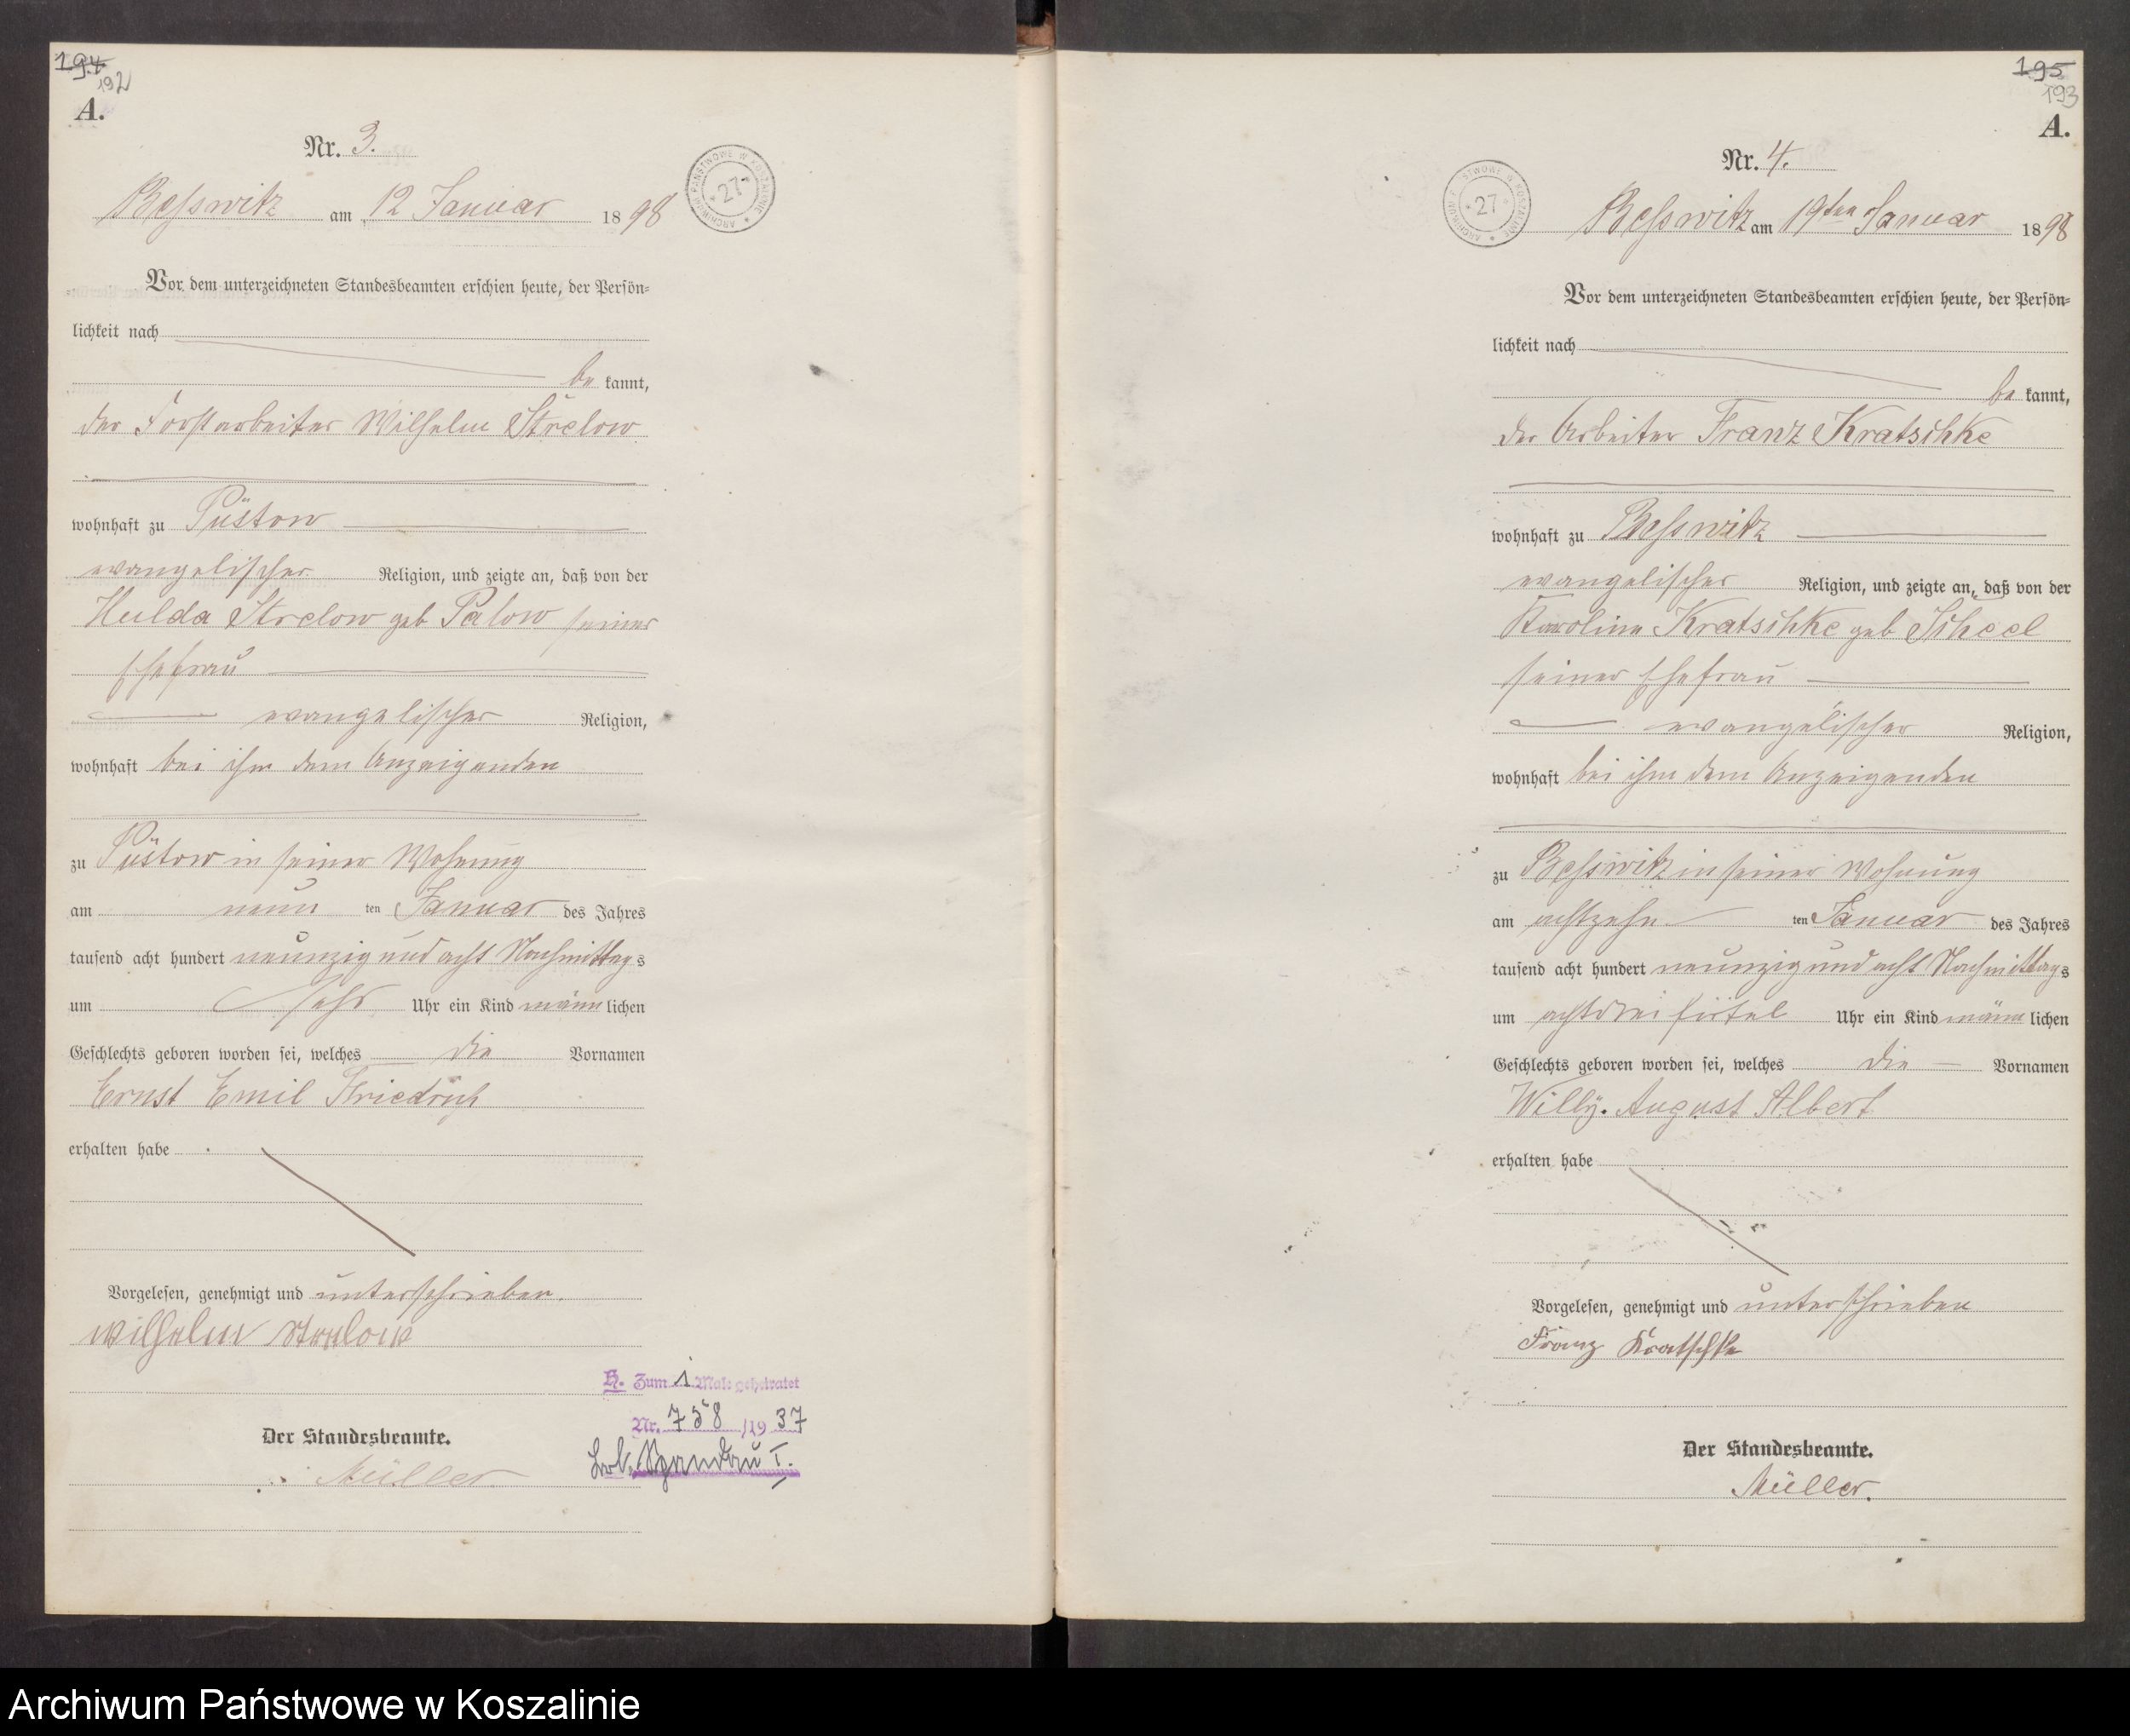 194
192
A.
Nr. 3.
Besswitz am 12 Januar 1898
ARCHIWUM PAŃSTWOWE W KOSZALINIE
* 27 *
Vor dem unterzeichneten Standesbeamten erschien heute, der Persön-
lichkeit nach
be kannt,
der Forstarbeiter Wilhelm Strelow
wohnhaft zu Püstow
evangelischer Religion, und zeigte an, daß von der
Hulda Strelow geb Palow seiner
Ehefrau
evangelischer Religion,
wohnhaft bei ihm dem Anzeigenden
zu Püstow in seiner Wohnung
am neun ten Januar des Jahres
tausend acht hundert neunzig und acht Nachmittags
um Uhr ein Kind männlichen
Geschlechts geboren worden sei, welches die Vornamen
Ernst Emil Friedrich
erhalten habe
Vorgelesen, genehmigt und unterschrieben.
Wilhelm Strelow
H. Zum 1 Male geheiratet
Nr. 758/1937
Spandau I.
Der Standesbeamte.
Müller
195
193
A.
Nr. 4.
ARCHIWUM PAŃSTWOWE W KOSZALINIE
* 27 *
Besswitz am 19ten Januar 1898
Vor dem unterzeichneten Standesbeamten erschien heute, der Persön-
lichkeit nach
be kannt,
der Arbeiter Franz Kratschke
wohnhaft zu Besswitz
evangelischer Religion, und zeigte an, daß von der
Karoline Kratschke geb Scheel
seiner Ehefrau
evangelischer Religion,
wohnhaft bei ihm dem Anzeigenden
zu Besswitz in seiner Wohnung
am achtzehn ten Januar des Jahres
tausend acht hundert neunzig und acht Nachmittags
um acht drei firtel Uhr ein Kind männlichen
Geschlechts geboren worden sei, welches die Vornamen
Willy. August Albert
erhalten habe
Vorgelesen, genehmigt und unterschrieben
Franz Kratschke
Der Standesbeamte.
Müller.
Archiwum Państwowe w Koszalinie